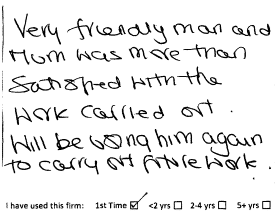 Very friendly man and
Mum was more than
satisfied with the
work carried out.
Will be using him again
to carry out future work.
I have used this firm: 1st Time ☑ <2 yrs ☐ 2-4 yrs ☐ 5+ yrs ☐